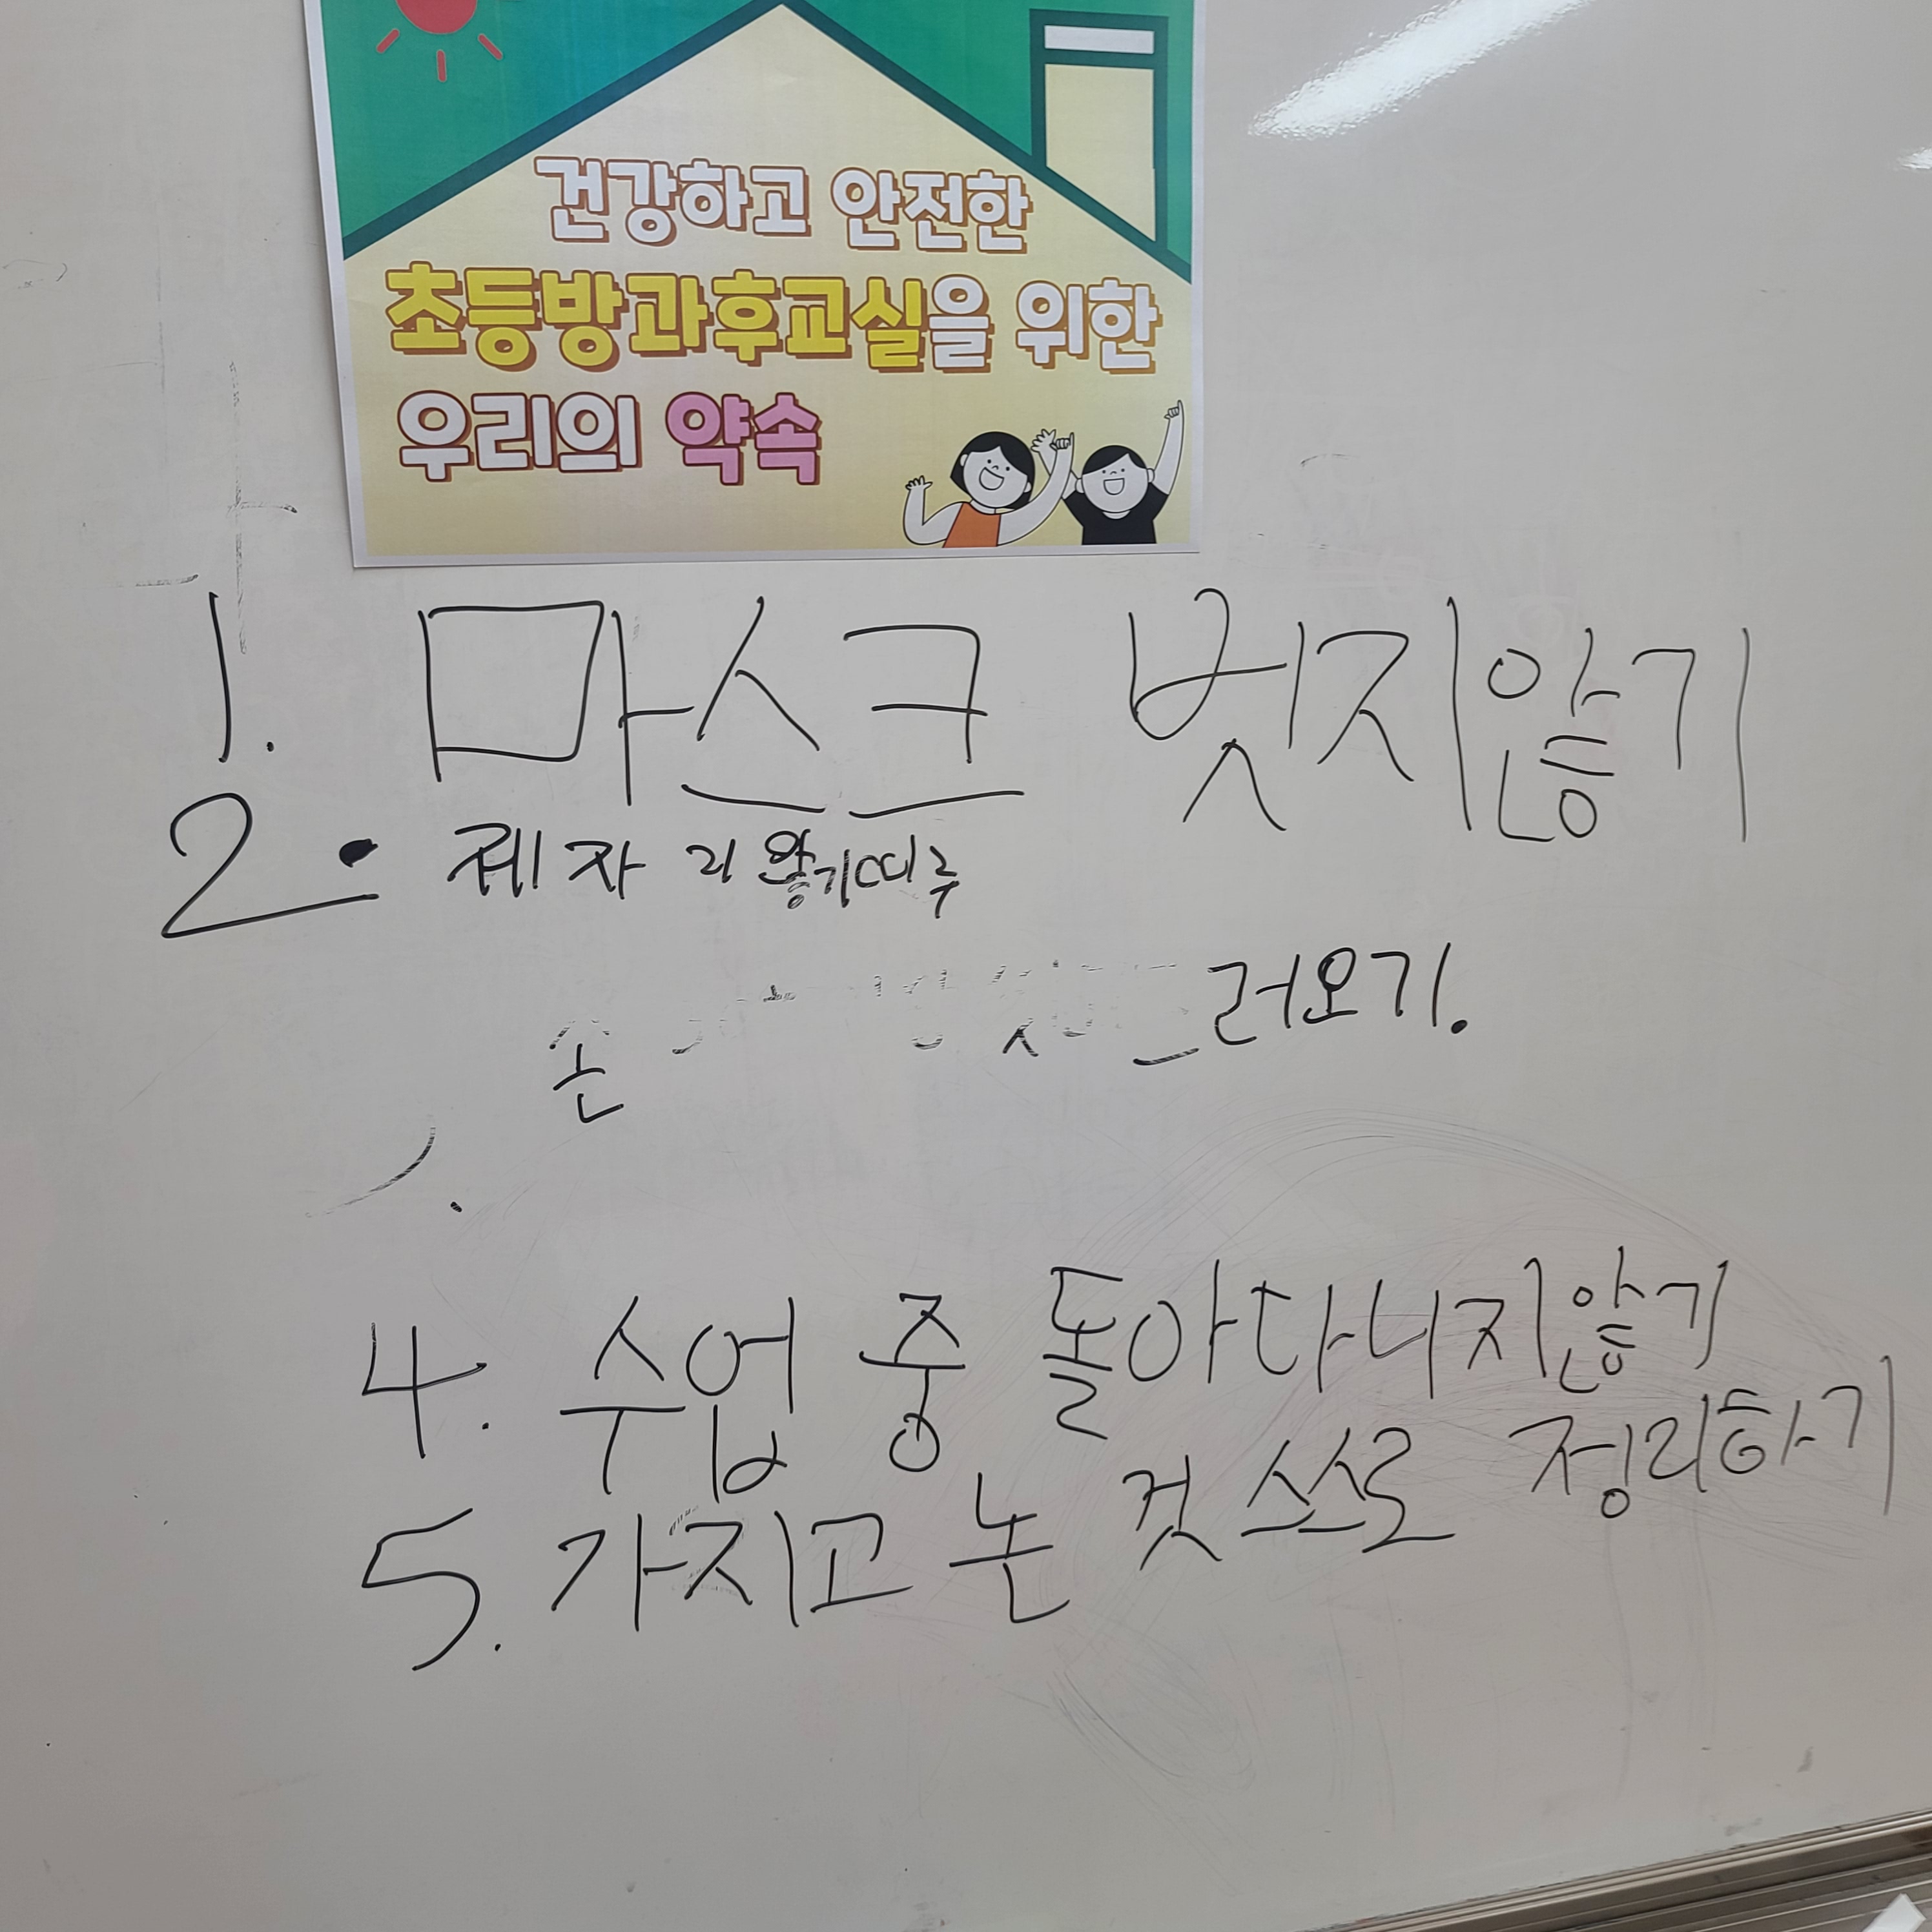 건강하고 안전한
초등방과후교실을 위한
우리의 약속
1. 마스크 벗지않기
2. 제자리
손 러오기.
4. 수업 중 돌아다니지않기
5. 가지고 논 것 스스로 정리하기